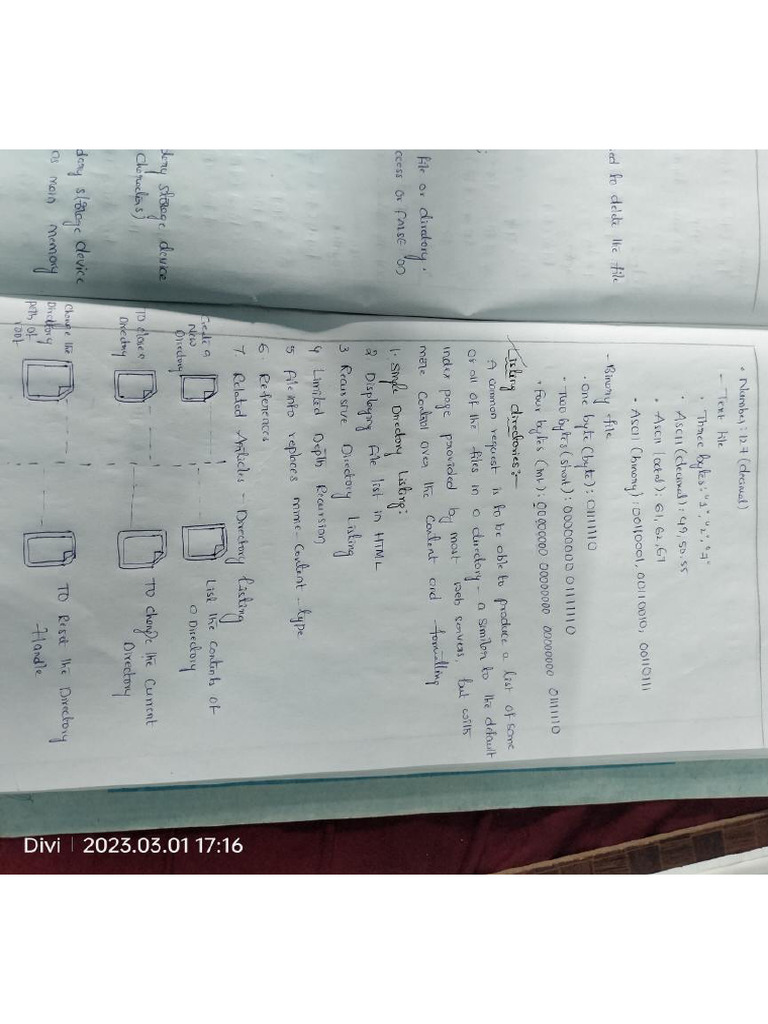 ed to delete the file
file or directory.
ccess or FALSE on
dory storage device
Characters)
dory storage device
as main memory
• Number: 127 (decimal)
- Text file
• Three bytes: "1", "2", "7"
• ASCII (decimal): 49, 50, 55
• ASCII (octal): 61, 62, 67
• ASCII (binary): 00110001, 00110010, 00110111
- Binary file
• One byte (byte): 01111110
• Two bytes (short): 00000000 01111110
• Four bytes (int): 00000000 00000000 00000000 01111110
Listing directories:-
A common request is to be able to produce a list of some
or all of the files in a directory - a similar to the default
index page provided by most web servers, but with
more control over the content and formatting
1. Simple Directory Listing:
2 Displaying file list in HTML
3 Recursive Directory Listing
4 Limited Depth Recursion
5 file info replaces mime-content-type
6 References
7. Related Articles - Directory Listing
Create a
New
Directory
List the contents of
a Directory
To close a
Directory
To change the Current
Directory
Change the
Directory
path of
root
To Reset the Directory
Handle
Divi | 2023.03.01 17:16